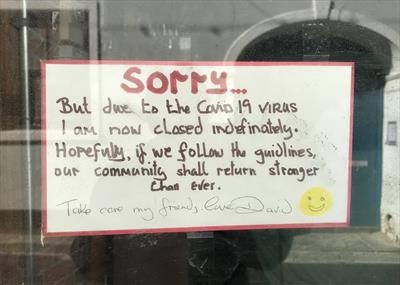 Sorry...
But due to the Covid 19 virus
I am now closed indefinately.
Hopefully, if we follow the guidlines,
our community shall return stronger
than ever.
Take care my friends, love David